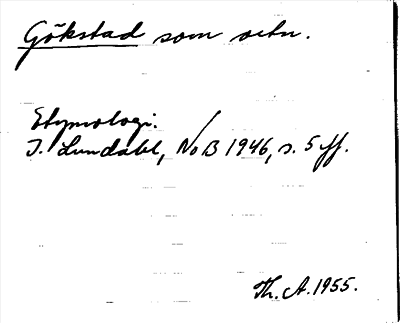 Gökstad som ortn.
Etymologi.
I. Lundahl, NoB 1946, s. 5 ff.
Th. A. 1955.